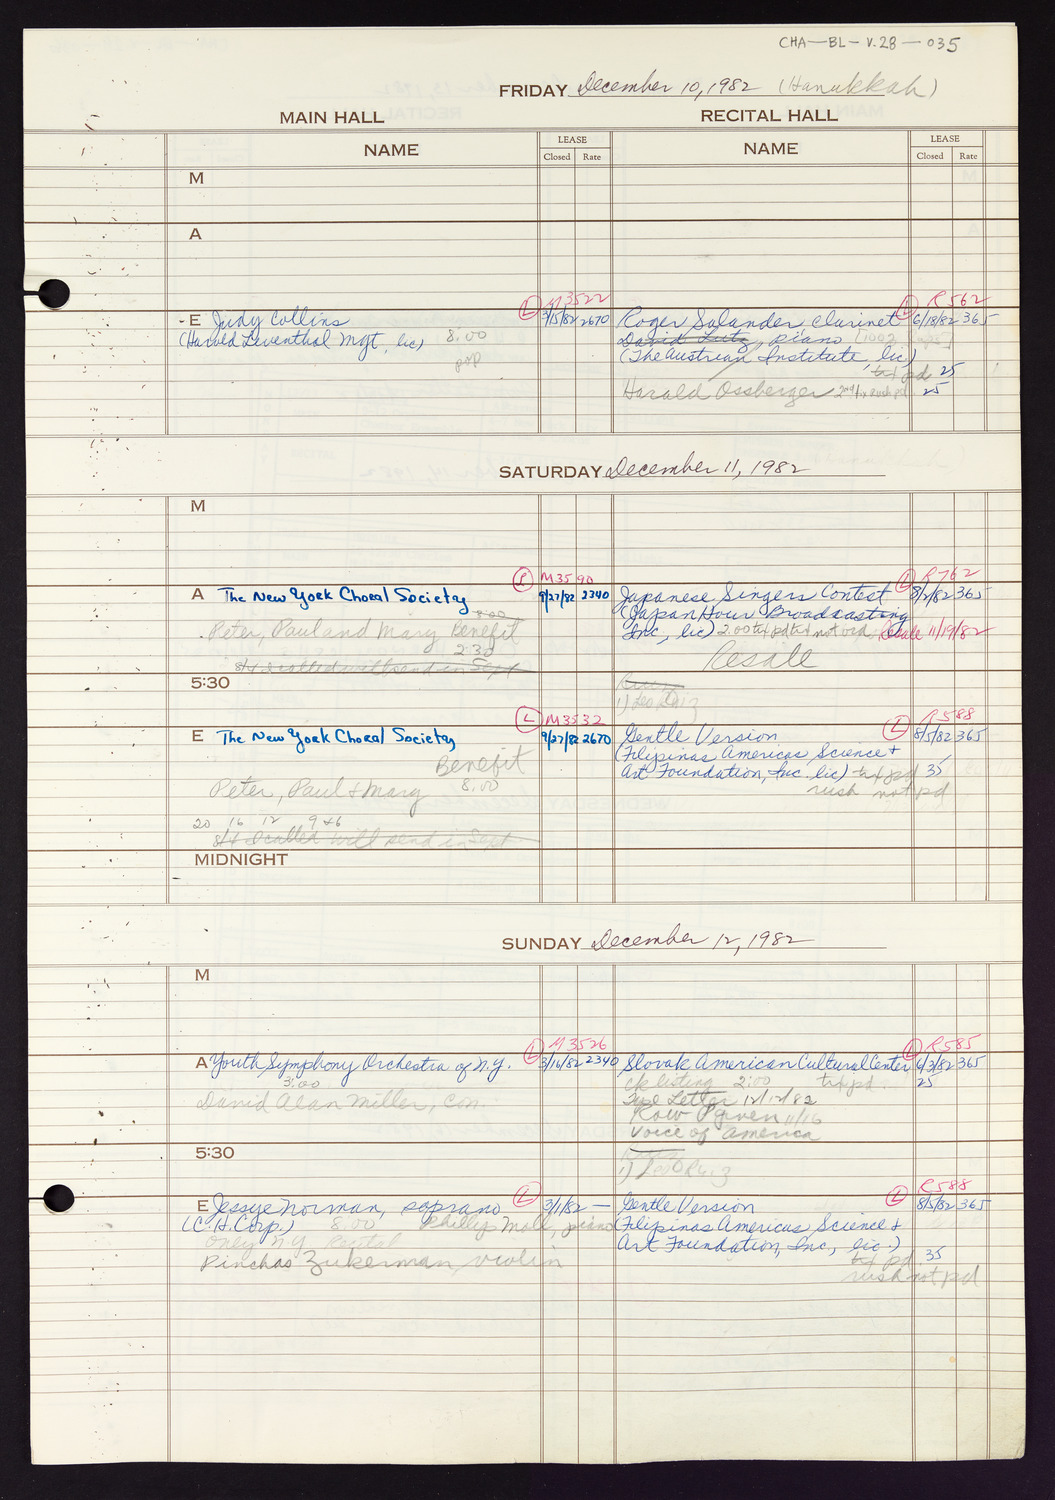 CHA-BL-V.28-035
FRIDAY December 10, 1982 (Hanukkah)
MAIN HALL RECITAL HALL
NAME LEASE NAME LEASE
Closed Rate Closed Rate
M
A
L M3522 L R562
E Judy Collins 3/15/82 2670 Roger Salander clarinet 6/18/82 365
(Harold Leventhal Mgt, lic) 8.00 David Lutz, piano
pop (The Austrian Institute, lic)
txt pd 25
Harald Ossberger 25
SATURDAY December 11, 1982
M
L M3590 L R762
A The New York Choral Society 9/27/82 2340 Japanese Singers Contest 8/2/82 365
8:00 (Japan Hour Broadcasting
Peter, Paul and Mary Benefit Inc, lic) 2.00 Resale 11/19/82
2:30 Resale
8/4 I called will send in Sept
5:30
1) Leo Ruiz
L M3532 L R588
E The New York Choral Society 9/27/82 2670 Gentle Version 8/5/82 365
Benefit (Filipinas Americas Science +
Peter, Paul & Mary 8.00 Art Foundation, Inc. lic) txt pd 35
rush not pd
20 16 12 9 &6
8/4 I called will send in Sept
MIDNIGHT
SUNDAY December 12, 1982
M
L M3526 L R585
A Youth Symphony Orchestra of N.Y. 3/16/82 2340 Slovak American Cultural Center 365
3:00 ck listing 2:00 txt pd 25
David Alan Miller, con. Letter 12/12/82
Row P given 11/16
Voice of America
5:30
1) Leo Ruiz
L L R588
E Jessye Norman, soprano 3/1/82 — Gentle Version 8/5/82 365
(C.H. Corp.) 8.00 Phillip Moll, piano (Filipinas Americas Science +
Only N.Y. Recital Art Foundation, Inc., lic.)
Pinchas Zukerman, violin txt pd 35
rush not pd